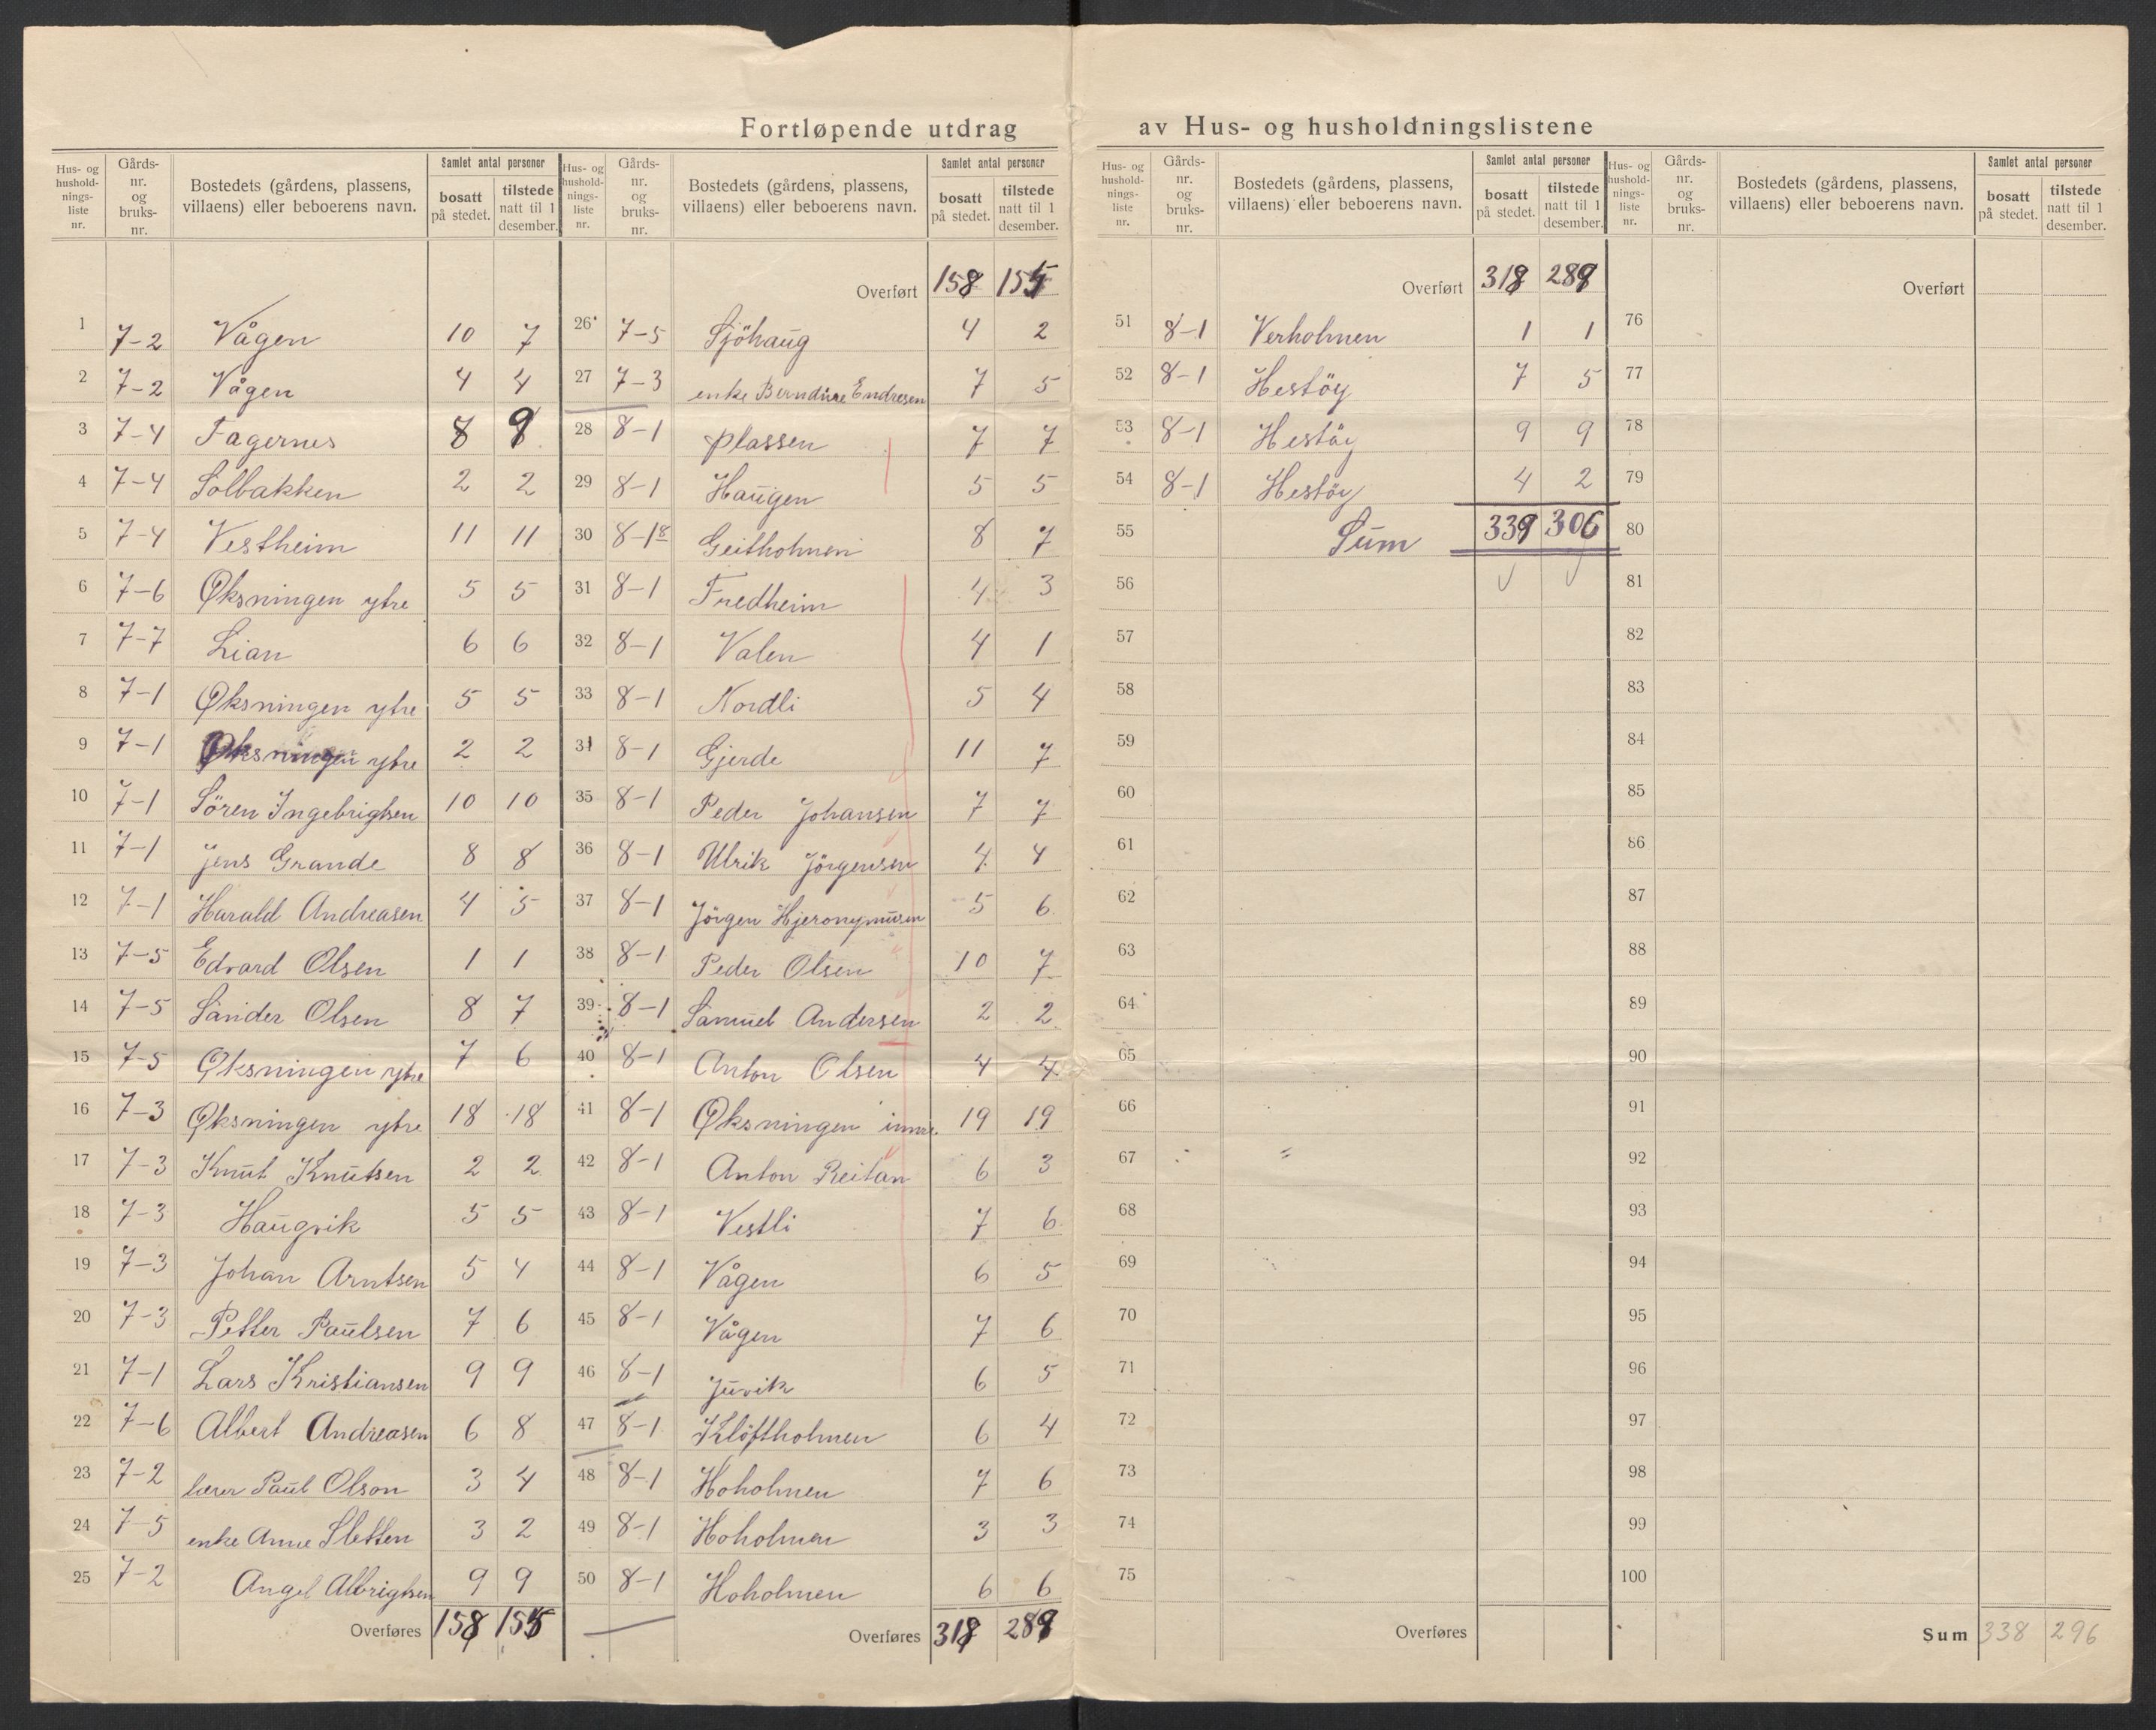 Fortløpende utdrag av Hus- og husholdningslistene
Hus- og hushold-nings-liste nr. | Gårds-nr. og bruks-nr. | Bostedets (gårdens, plassens, villaens) eller beboerens navn. | Samlet antal personer | bosatt på stedet. | tilstede natt til 1 desember.
1 7-2 Vågen 10 7
2 7-2 Vågen 4 4
3 7-4 Fagernes 8 9
4 7-4 Solbakken 2 2
5 7-4 Vestheim 11 11
6 7-6 Øksningen ytre 5 5
7 7-7 Lian 6 6
8 7-1 Øksningen ytre 5 5
9 7-1 Øksningen ytre 2 2
10 7-1 Sören Ingebrigtsen 10 10
11 7-1 Jens Grande 8 8
12 7-1 Harald Andreasen 4 5
13 7-5 Edvard Olsen 1 1
14 7-5 Sander Olsen 8 7
15 7-5 Øksningen ytre 7 6
16 7-3 Øksningen ytre 18 18
17 7-3 Knut Knutsen 2 2
18 7-3 Haugvik 5 5
19 7-3 Johan Arntsen 5 4
20 7-3 Petter Paulsen 7 6
21 7-1 Lars Kristiansen 9 9
22 7-6 Albert Andreasen 6 8
23 7-2 lærer Paul Olson 3 4
24 7-5 enke Anne Sletten 3 2
25 7-2 Angel Albrigtsen 9 9
Overføres 158 155
Hus- og hushold-nings-liste nr. | Gårds-nr. og bruks-nr. | Bostedets (gårdens, plassens, villaens) eller beboerens navn. | Samlet antal personer | bosatt på stedet. | tilstede natt til 1 desember.
Overført 158 155
26 7-5 Sjöhaug 4 2
27 7-3 enke Berndine Endresen 7 5
28 8-1 plassen 7 7
29 8-1 Haugen 5 5
30 8-18 Geitholmen 8 7
31 8-1 Fredheim 4 3
32 8-1 Valen 4 1
33 8-1 Nordli 5 4
34 8-1 Gjerde 11 7
35 8-1 Peder Johansen 7 7
36 8-1 Ulrik Jörgensen 4 4
37 8-1 Jörgen Hjeronymusen 5 6
38 8-1 Peder Olsen 10 7
39 8-1 Samuel Andersen 2 2
40 8-1 Anton Olsen 4 4
41 8-1 Øksningen inmre 19 19
42 8-1 Anton Reitan 6 3
43 8-1 Vestli 7 6
44 8-1 Vågen 6 5
45 8-1 Vågen 7 6
46 8-1 Juvik 6 5
47 8-1 Klöftholmen 6 4
48 8-1 Hoholmen 7 6
49 8-1 Hoholmen 3 3
50 8-1 Hoholmen 6 6
Overføres 318 289
Hus- og hushold-nings-liste nr. | Gårds-nr. og bruks-nr. | Bostedets (gårdens, plassens, villaens) eller beboerens navn. | Samlet antal personer | bosatt på stedet. | tilstede natt til 1 desember.
Overført 318 289
51 8-1 Verholmen 1 1
52 8-1 Hestöy 7 5
53 8-1 Hestöy 9 9
54 8-1 Hestöy 4 2
55 Sum 339 306
56
57
58
59
60
61
62
63
64
65
66
67
68
69
70
71
72
73
74
75
Overføres
Hus- og hushold-nings-liste nr. | Gårds-nr. og bruks-nr. | Bostedets (gårdens, plassens, villaens) eller beboerens navn. | Samlet antal personer | bosatt på stedet. | tilstede natt til 1 desember.
Overført
76
77
78
79
80
81
82
83
84
85
86
87
88
89
90
91
92
93
94
95
96
97
98
99
100
Sum 338 296